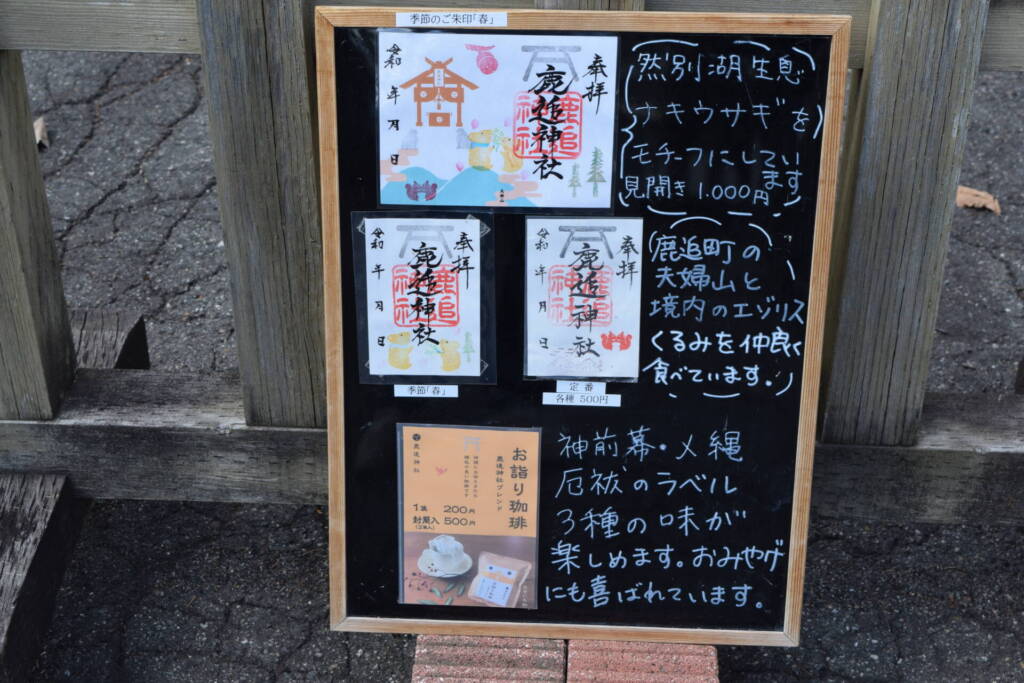 季節のご朱印「春」
奉拝
鹿追神社
鹿追
神社
令和
年
月
日
然別湖生息
ナキウサギを
モチーフにしてい
ます
見開き 1.000円
奉拝
鹿追神社
鹿追
神社
令和
年
月
日
季節「春」
奉拝
鹿追神社
鹿追
神社
令和
年
月
日
定番
各種 500円
鹿追町の
夫婦山と
境内のエゾリス
くるみを仲良く
食べています。
鹿追神社
お詣り珈琲
鹿追神社ブレンド
1袋 200円
封筒入 500円
神前幕・〆縄
厄祓のラベル
3種の味が
楽しめます。おみやげ
にも喜ばれています。